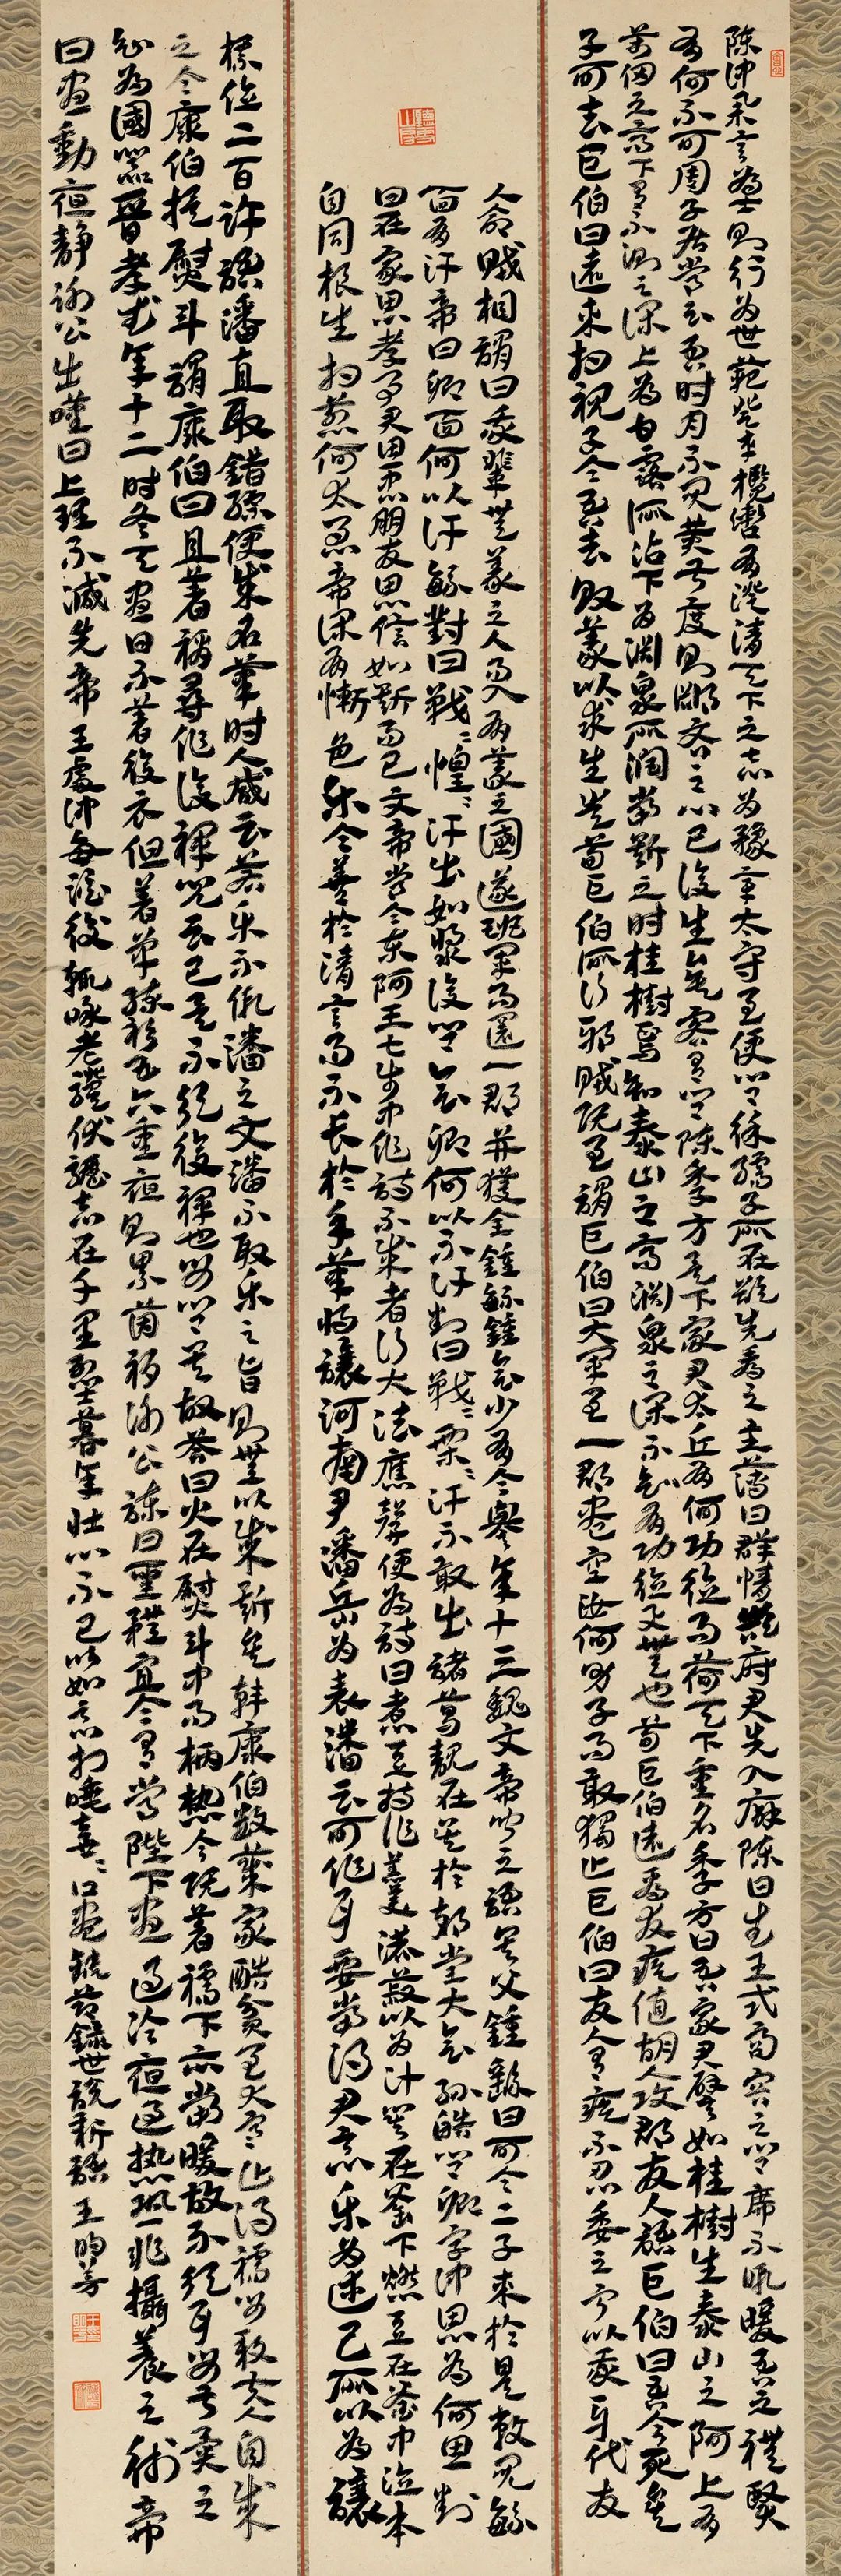 陈仲举言为士则行为世范登车揽辔有澄清天下之志为豫章太守至便问徐孺子所在欲先看之主薄曰群情欲府君先入廨陈曰武王式商容之闾席不暇暖吾之礼贤
有何不可周子居常云吾时月不见黄叔度则鄙吝之心已复生矣客有问陈季方足下家君太丘有何功德而荷天下重名季方曰吾家君譬如桂樹生泰山之阿上有
萬仞之高下有不测之深上为甘露所沾下为渊泉所润當斯之时桂樹焉知泰山之高渊泉之深不知有功德与無也荀巨伯远看友疾值胡人攻郡友人語巨伯曰吾今死矣
子可去巨伯曰远来相视子令吾去败义以求生岂荀巨伯所行邪贼既至謂巨伯曰大军至一郡尽空汝何男子而敢独止巨伯曰友人有疾不忍委之寧以我身代友
人命贼相謂曰我辈無义之人而入有义之國遂班军而還一郡并获全鍾毓鍾会少有令譽年十三魏文帝闻之語其父鍾繇曰可令二子来於是敕见毓
面有汗帝曰卿面何以汗毓對曰戰戰惶惶汗出如漿復问会卿何以不汗對曰戰戰栗栗汗不敢出諸葛靚在吴於朝堂大会孙皓问卿字仲思为何思對
曰在家思孝事君思忠朋友思信如斯而已文帝尝令东阿王七步中作詩不成者行大法應聲便为詩曰煮豆持作羹漉菽以为汁萁在釜下燃豆在釜中泣本
自同根生相煎何太急帝深有惭色乐令善於清言而不长於手筆将讓河南尹潘岳为表潘云可作耳要當得君意乐为述己所以为讓
標位二百许語潘直取錯綜便成名筆时人咸云若乐不假潘之文潘不取乐之旨则無以成斯矣韓康伯数歲家酷貧至大寒止得襦母殷夫人自成
之令康伯捉熨斗謂康伯曰且著襦尋作複褌兒云已足不须複褌也母问其故答曰火在熨斗中而柄热今既著襦下亦當暖故不须耳母甚异之
知为國器晋孝武年十二时冬天昼日不著複衣但著单練衫五六重夜则累茵褥谢公諫曰聖體宜令有常陛下昼过冷夜过热恐非攝養之術帝
曰昼動夜静谢公出嘆曰上理不减先帝王處仲每酒後輒咏老驥伏櫪志在千里烈士暮年壮心不已以如意打唾壺壺口尽缺節録世説新語王昀芳